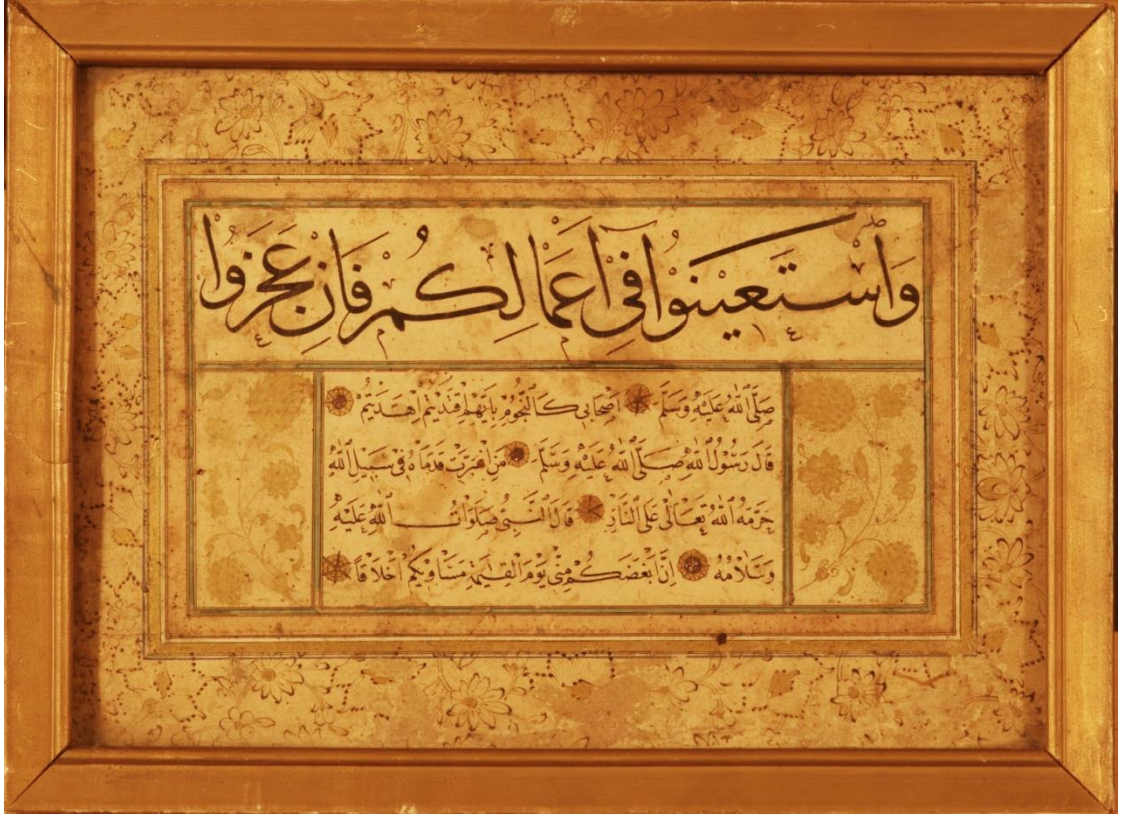 وَاسْتَعِينُوا فِي اَعْمَالِكُمْ فَاِنْ عَجَزُوا
صَلَّى اللّٰهُ عَلَيْهِ وَسَلَّمَ اَصْحَابِي كَالنُّجُومِ بِاَيِّهِمْ اقْتَدَيْتُمْ اِهْتَدَيْتُمْ
قَالَ رَسُولُ اللّٰهِ صَلَّى اللّٰهُ عَلَيْهِ وَسَلَّمَ مَنِ اغْبَرَّتْ قَدَمَاهُ فِي سَبِيلِ اللّٰهِ
حَرَّمَهُ اللّٰهُ تَعَالٰى عَلَى النَّارِ قَالَ النَّبِيُّ صَلَوَاتُ اللّٰهِ عَلَيْهِ
وَسَلَامُهُ اِنَّ اَبْغَضَكُمْ مِنِّي يَوْمَ الْقِيٰمَةِ مَسَاوِيكُمْ اَخْلَاقًا